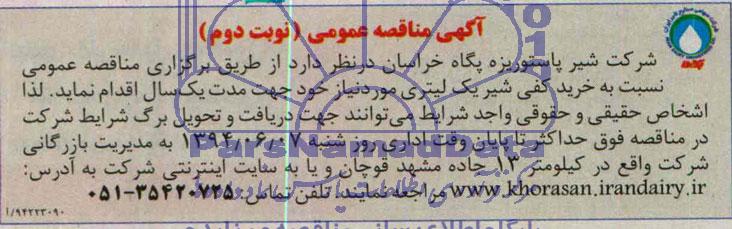 آگهی مناقصه عمومی (نوبت دوم)
شرکت شیر پاستوریزه پگاه خراسان درنظر دارد از طریق برگزاری مناقصه عمومی
نسبت به خرید کفی شیر یک لیتری موردنیاز خود جهت مدت یک‌سال اقدام نماید. لذا
اشخاص حقیقی و حقوقی واجد شرایط می‌توانند جهت دریافت و تحویل برگ شرایط شرکت
در مناقصه فوق حداکثر تا پایان وقت اداری روز شنبه ۱۳۹۴/۰۶/۰۷ به مدیریت بازرگانی
شرکت واقع در کیلومتر ۱۳ جاده مشهد قوچان و یا به سایت اینترنتی شرکت به آدرس:
www.khorasan.irandairy.ir مراجعه نمایند. تلفن تماس: ۳۵۴۲۰۷۲۵-۰۵۱
۱/۹۴۲۲۳۰۹۰
ParsNamadData
پایگاه اطلاع رسانی مناقصه و مزایده